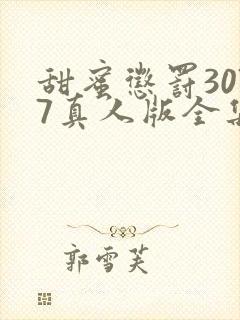 甜蜜惩罚30
7真人版全集
郭雪芙